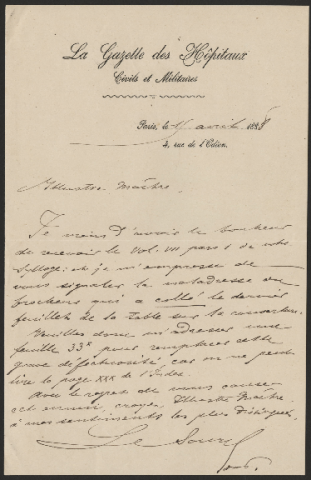 La Gazette des Hôpitaux
Civils et Militaires
Paris, le 5 avril 1888
4, rue de l'Odéon
Illustre Maître,
Je viens d'avoir le bonheur
de recevoir le vol. VII pars I de votre
Sylloge; et je m'empresse de
vous signaler la maladresse du
brocheur qui a collé le dernier
feuillet de la table sur le
Veuillez donc m'adresser une
feuille 33e pour remplacer cette
grave défectuosité, car on ne peut
lire la page XXX de l'Index.
Avec le regret de vous causer
cet ennui, croyez, Illustre Maître,
à mes sentiments les plus distingués,
Le Sourd